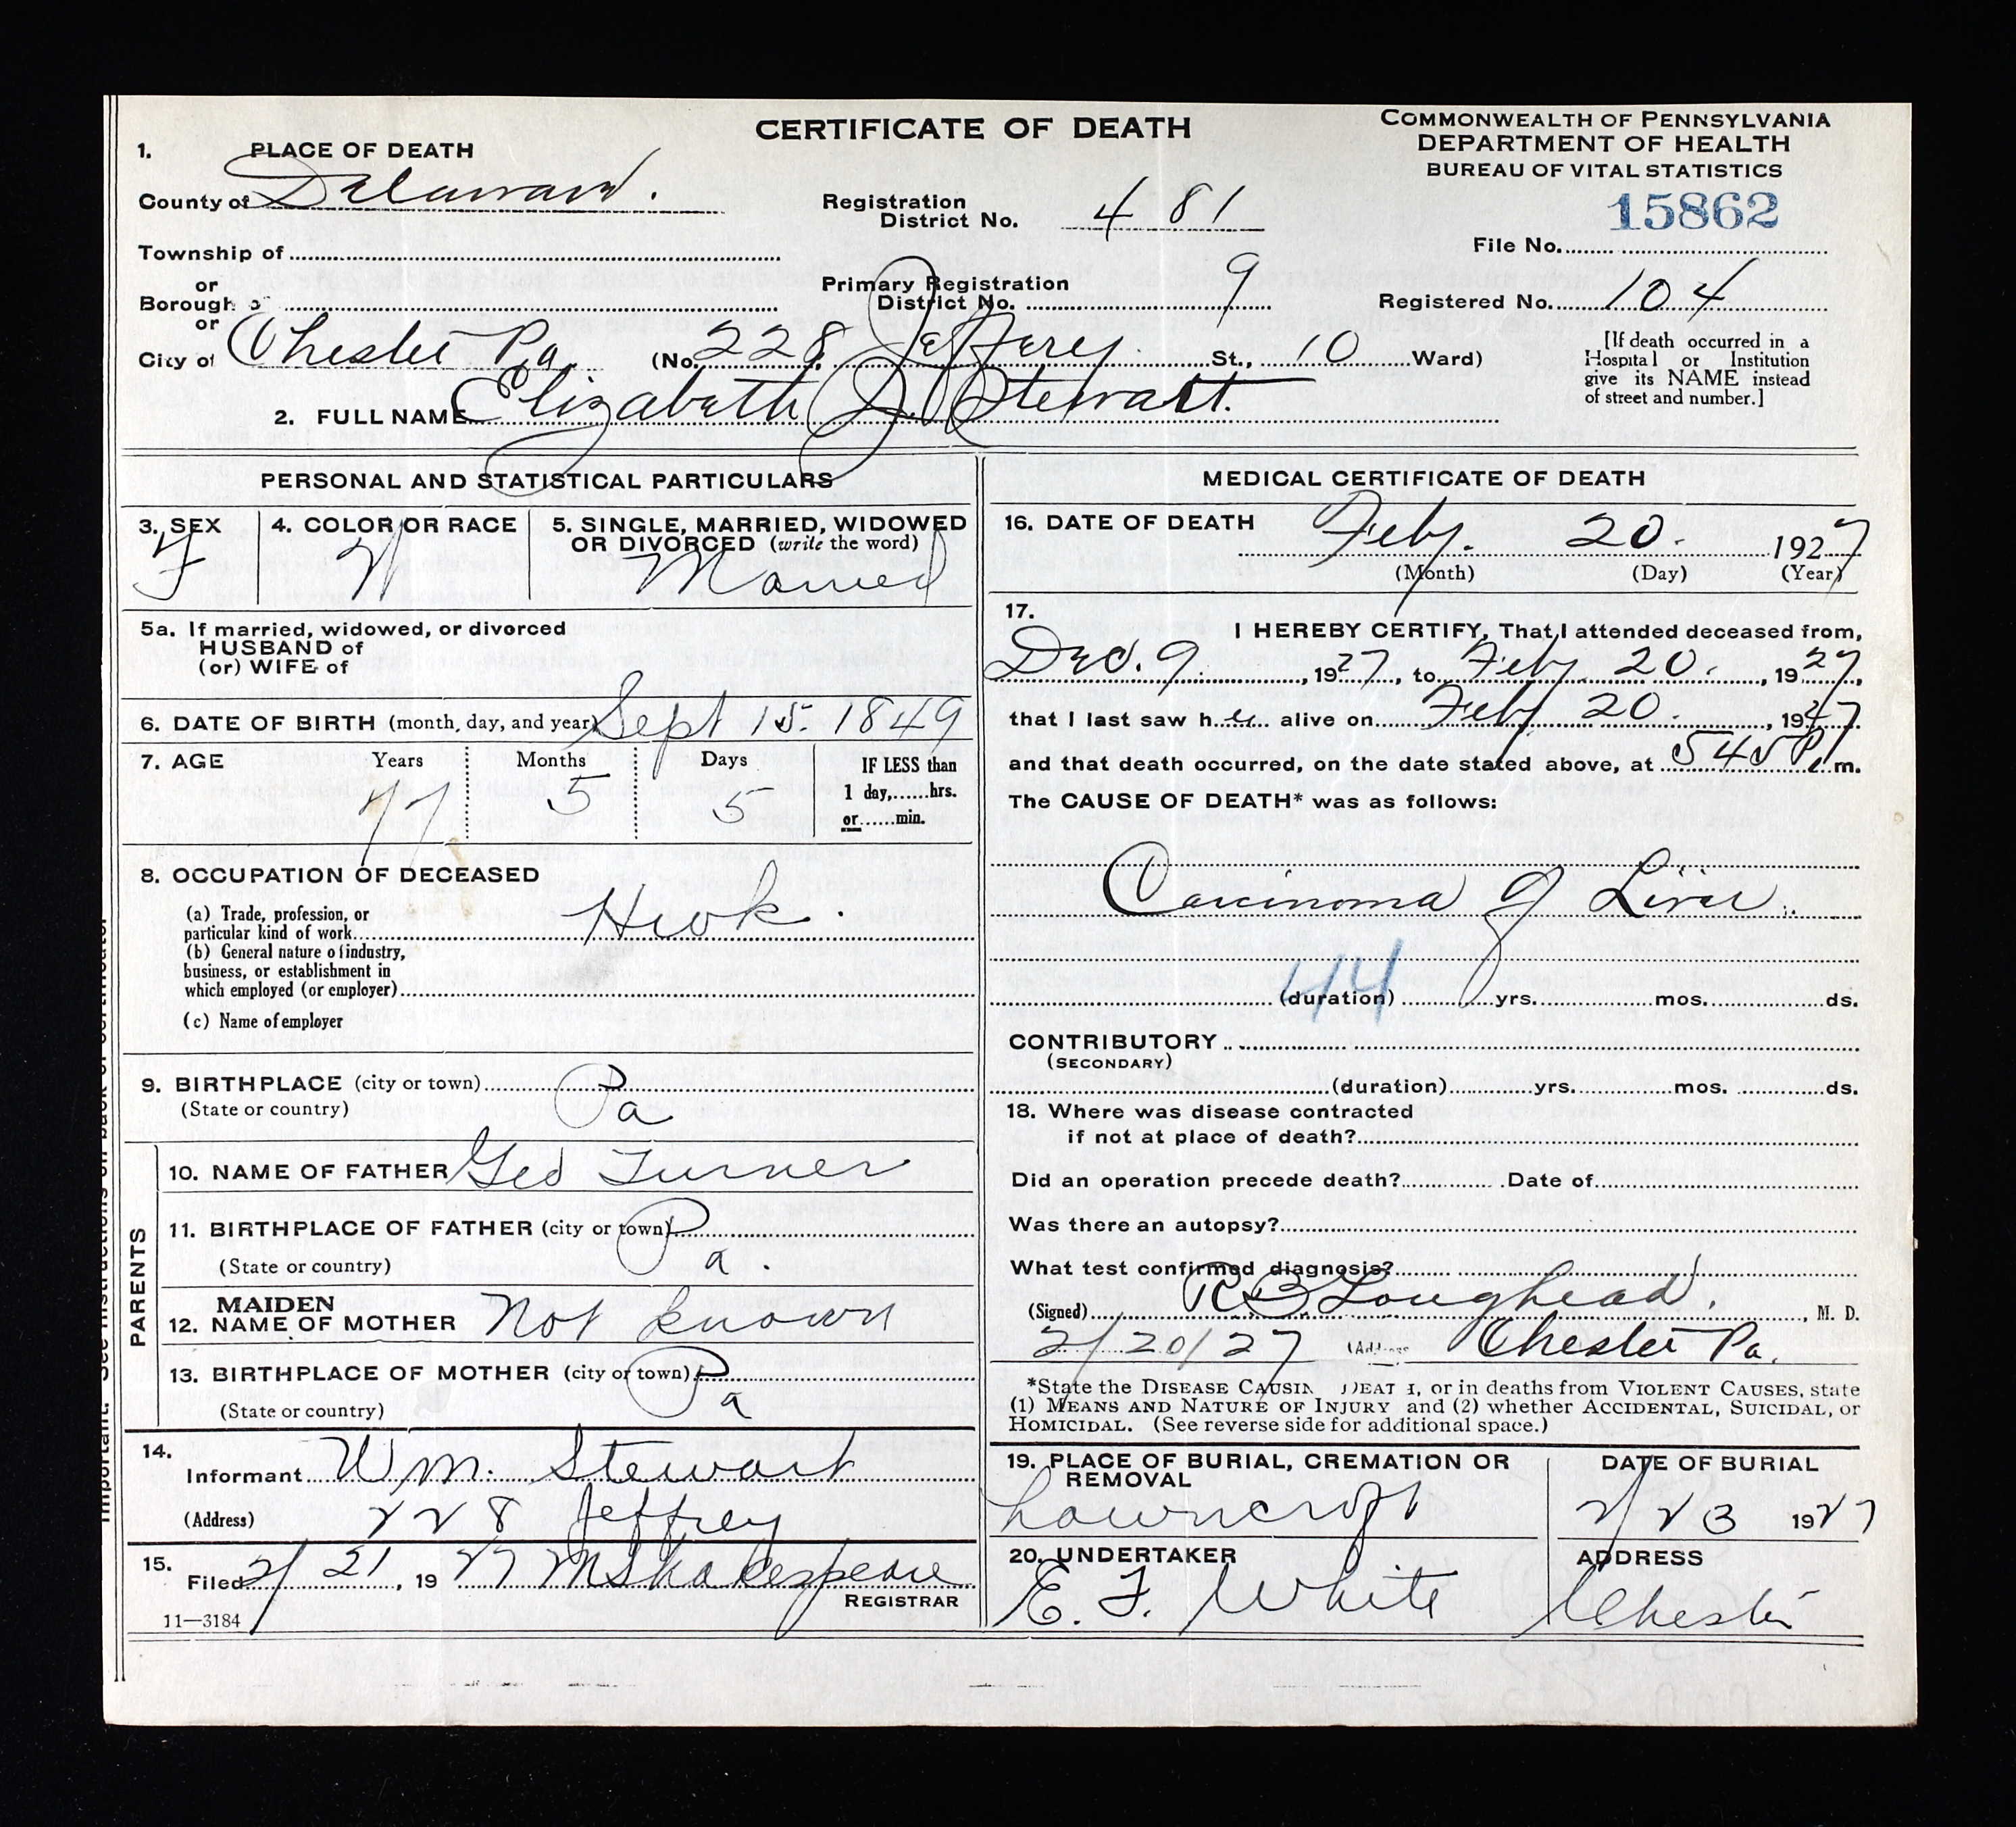 CERTIFICATE OF DEATH
COMMONWEALTH OF PENNSYLVANIA
DEPARTMENT OF HEALTH
BUREAU OF VITAL STATISTICS
15862
File No.
Registered No. 104
[If death occurred in a
Hospital or Institution
give its NAME instead
of street and number.]
1. PLACE OF DEATH
County of Delaware.
Registration
District No. 481
Township of
or
Borough
or
Primary Registration
District No. 9
City of Chester Pa. (No. 228, Jeffrey St., 10 Ward)
2. FULL NAME Elizabeth J. Stewart.
PERSONAL AND STATISTICAL PARTICULARS
3. SEX F
4. COLOR OR RACE W
5. SINGLE, MARRIED, WIDOWED
OR DIVORCED (write the word)
Married
5a. If married, widowed, or divorced
HUSBAND of
(or) WIFE of
6. DATE OF BIRTH (month, day, and year) Sept 15. 1849
7. AGE Years Months Days IF LESS than
77 5 5 1 day,......hrs.
or......min.
8. OCCUPATION OF DECEASED
(a) Trade, profession, or
particular kind of work Hwok.
(b) General nature of industry,
business, or establishment in
which employed (or employer)
(c) Name of employer
9. BIRTHPLACE (city or town)
(State or country) Pa
PARENTS
10. NAME OF FATHER Geo Turner
11. BIRTHPLACE OF FATHER (city or town)
(State or country) Pa.
12. MAIDEN NAME OF MOTHER Not known
13. BIRTHPLACE OF MOTHER (city or town)
(State or country) Pa
14.
Informant Wm. Stewart
(Address) 228 Jeffrey
15.
Filed 2/21, 1927 M Shakespeare
REGISTRAR
11—3184
MEDICAL CERTIFICATE OF DEATH
16. DATE OF DEATH Feby. 20. 1927
(Month) (Day) (Year)
17.
I HEREBY CERTIFY, That I attended deceased from,
Dec. 9, 1927, to Feby 20., 1927,
that I last saw her alive on Feby 20., 1927
and that death occurred, on the date stated above, at 545 P.m.
The CAUSE OF DEATH* was as follows:
Carcinoma of Liver.
44
(duration) yrs. mos. ds.
CONTRIBUTORY
(SECONDARY)
(duration) yrs. mos. ds.
18. Where was disease contracted
if not at place of death?
Did an operation precede death? Date of
Was there an autopsy?
What test confirmed diagnosis?
(Signed) R B Loughead., M. D.
2/20/27 (Address Chester Pa.
*State the DISEASE CAUSIN DEAT H, or in deaths from VIOLENT CAUSES, state
(1) MEANS AND NATURE OF INJURY and (2) whether ACCIDENTAL, SUICIDAL, or
HOMICIDAL. (See reverse side for additional space.)
19. PLACE OF BURIAL, CREMATION OR
REMOVAL
Lawncroft
DATE OF BURIAL
2/23 1927
20. UNDERTAKER
E. F. White
ADDRESS
Chester